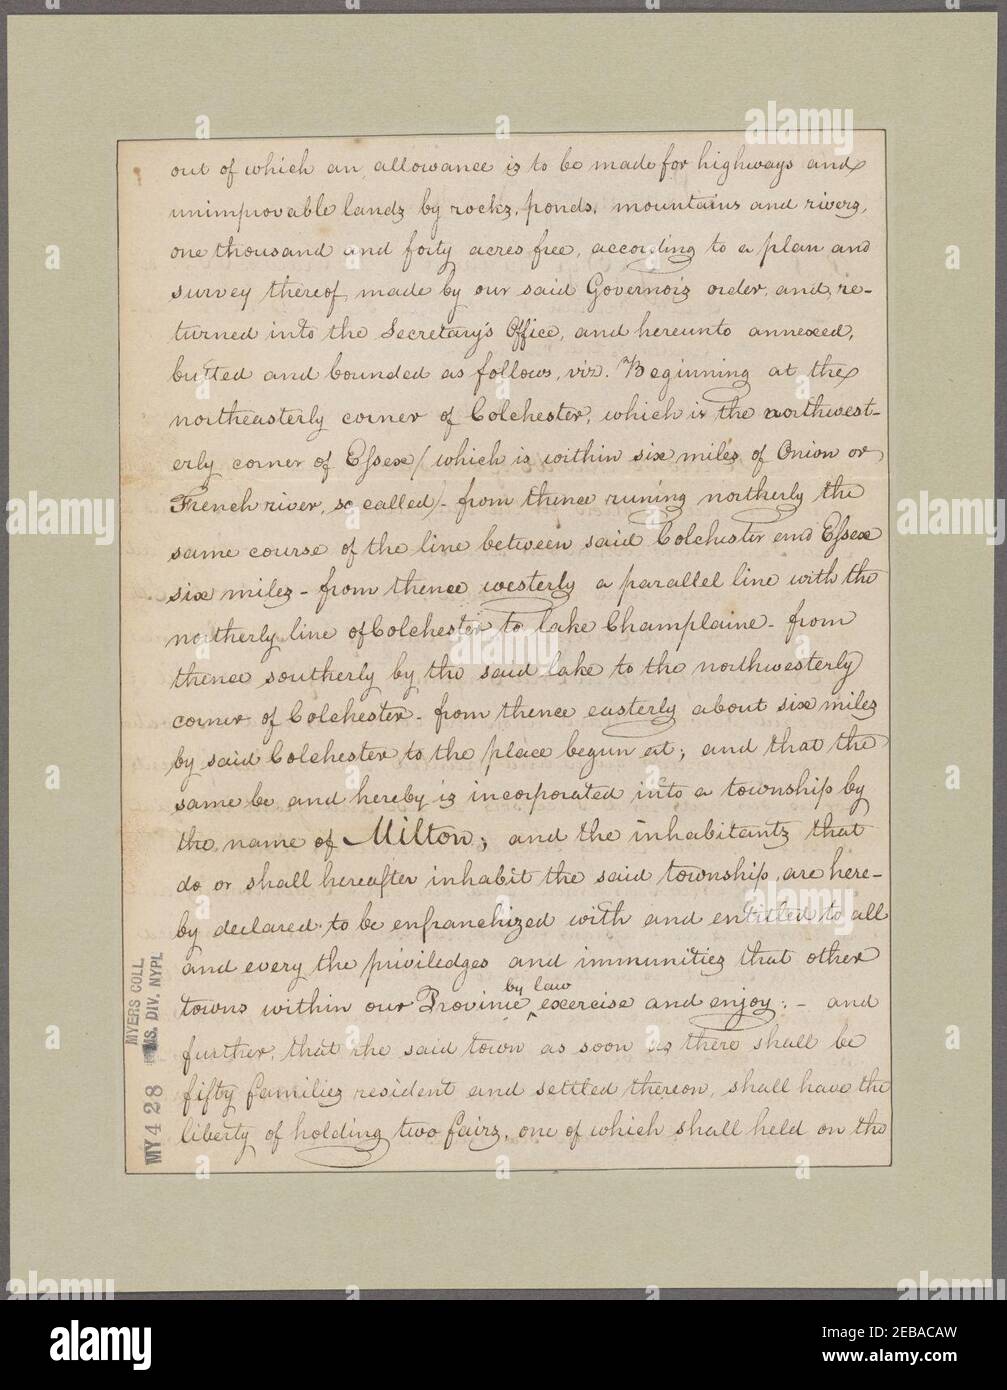 out of which an allowance is to be made for highways and
unimprovable lands by rocks, ponds, mountains and rivers,
one thousand and forty acres free, according to a plan and
survey thereof, made by our said Governors order, and, re-
turned into the Secretary's Office, and hereunto annexed,
butted and bounded as follows, viz. Beginning at the
northeasterly corner of Colchester, which is the northwest-
erly corner of Essex (which is within six miles of Onion or
French river, so called) - from thence runing northerly the
same course of the line between said Colchester and Essex
six miles - from thence westerly a parallel line with the
northerly line of Colchester to lake Champlaine - from
thence southerly by the said lake to the northwesterly
corner of Colchester - from thence easterly about six miles
by said Colchester to the place begun at; and that the
same be and hereby is incorporated into a township by
the name of Milton; and the inhabitants that
do or shall hereafter inhabit the said township, are here-
by declared to be enfranchized with and entitled to all
and every the priviledges and immunities that other
by law
towns within our Provinie ‸ exercise and enjoy: - and
further, that the said town as soon as there shall be
fifty families resident and settled thereon, shall have the
liberty of holding two fairs, one of which shall held on the
MYERS COLL
MS. DIV. NYPL
MY 4 28
alamy
Image ID: 2EBACAW
www.alamy.com